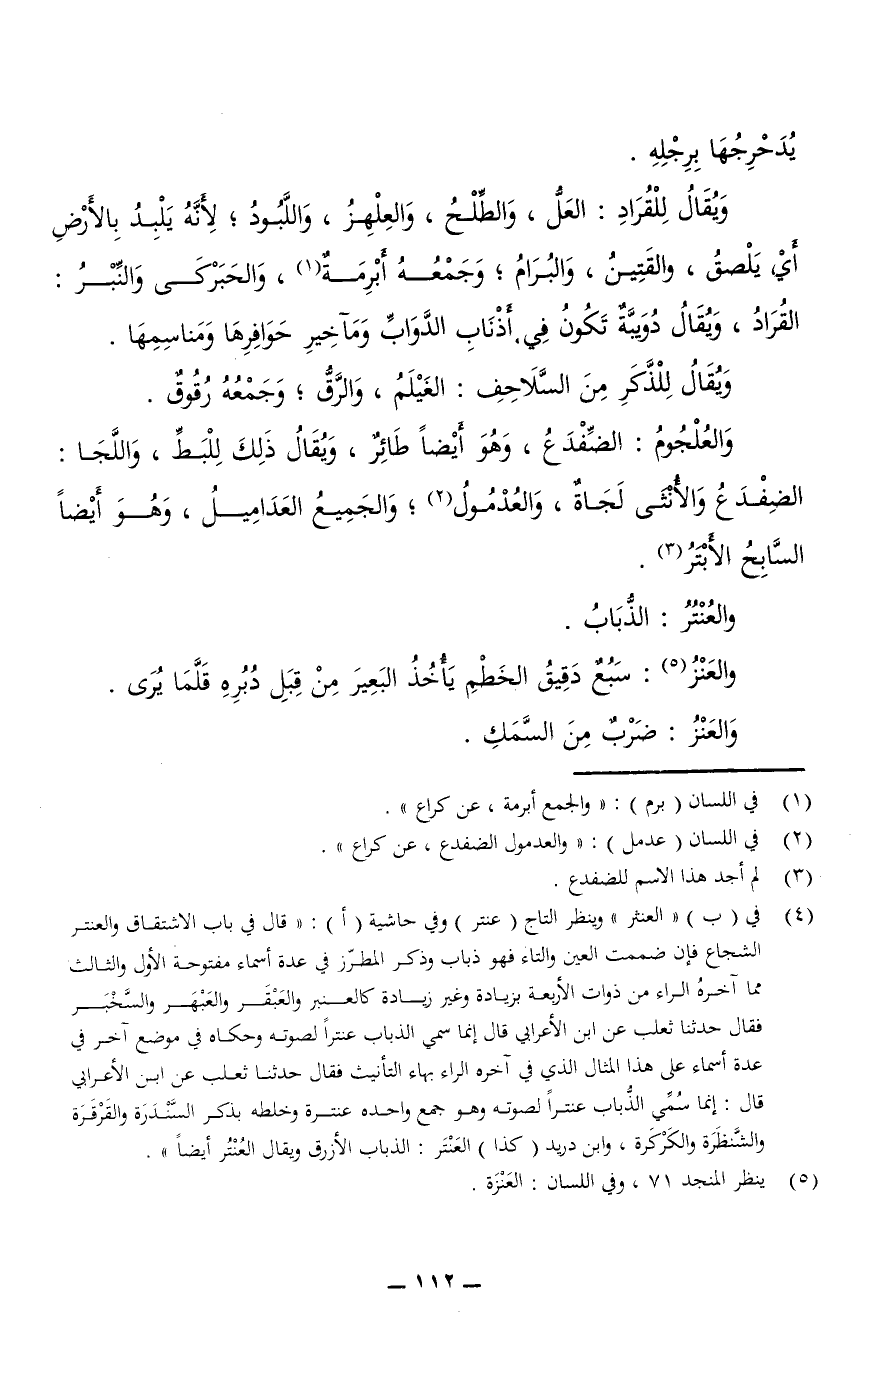 يُدَحْرِجُهَا بِرِجْلِهِ .
وَيُقَالُ لِلْقُرَادِ : العَلُّ ، وَالطِّلْحُ ، وَالعِلْهِزُ ، وَاللَّبُودُ ؛ لِأَنَّهُ يَلْبِدُ بِالأَرْضِ
أَيْ يَلْصِقُ ، والقَتِينُ ، وَالبُرَامُ ؛ وَجَمْعُهُ أَبْرِمَةٌ(١) ، وَالحَبَرْكَى وَالنِّبْرُ :
القُرَادُ ، وَيُقَالُ دُوَيبَّةٌ تَكُونُ فِي أَذْنَابِ الدَّوَابِّ وَمَآخِيرِ حَوَافِرِهَا وَمَنَاسِمِهَا .
وَيُقَالُ لِلْذَّكَرِ مِنَ السَّلَاحِفِ : الغَيْلَمُ ، وَالرَّقُّ ؛ وَجَمْعُهُ رُقُوقٌ .
وَالعُلْجُومُ : الضِّفْدَعُ ، وَهُوَ أَيْضاً طَائِرٌ ، وَيُقَالُ ذَلِكَ لِلْبَطِّ ، وَاللَّجَا :
الضِفْدَعُ وَالأُنْثَى لَجَاةٌ ، وَالعُدْمُولُ(٢) ؛ وَالجَمِيعُ العَدَامِيلُ ، وَهُوَ أَيْضاً
السَّابِحُ الأَبْتَرُ(٣) .
والعُنْتُرُ : الذُّبَابُ .
والعَنْزُ(٥) : سَبُعٌ دَقِيقُ الخَطْمِ يَأْخُذُ البَعِيرَ مِنْ قِبَلِ دُبُرِهِ قَلَّمَا يُرَى .
وَالعَنْزُ : ضَرْبٌ مِنَ السَّمَكِ .
(١) في اللسان ( برم ) : « والجمع أبرمة ، عن كراع » .
(٢) في اللسان ( عدمل ) : « والعدمول الضفدع ، عن كراع » .
(٣) لم أجد هذا الاسم للضفدع .
(٤) في ( ب ) « العنثر » وينظر التاج ( عنتر ) وفي حاشية ( أ ) : « قال في باب الاشتقاق والعنتر
الشجاع فإن ضممت العين والتاء فهو ذباب وذكر المطرّز في عدة أسماء مفتوحة الأول والثالث
مما آخرهُ الراء من ذوات الأربعة بزيادة وغير زيادة كالعنبر والعَبْقَر والعَبْهَر والسَّخْبَر
فقال حدثنا ثعلب عن ابن الأعرابي قال إنما سمي الذباب عنتراً لصوته وحكاه في موضع آخر في
عدة أسماء على هذا المثال الذي في آخره الراء بهاء التأنيث فقال حدثنا ثعلب عن ابن الأعرابي
قال : إنما سُمِّي الذُّباب عنتراً لصوته وهو جمع واحده عنترة وخلطه بذكر السَّنْدَرَة والقَرْقَرَة
والشَّنظَرَة والكَرْكَرة ، وابن دريد ( كذا ) العَنْتَر : الذباب الأزرق ويقال العُنْتُر أيضاً » .
(٥) ينظر المنجد ٧١ ، وفي اللسان : العَنْزَة .
— ١١٢ —